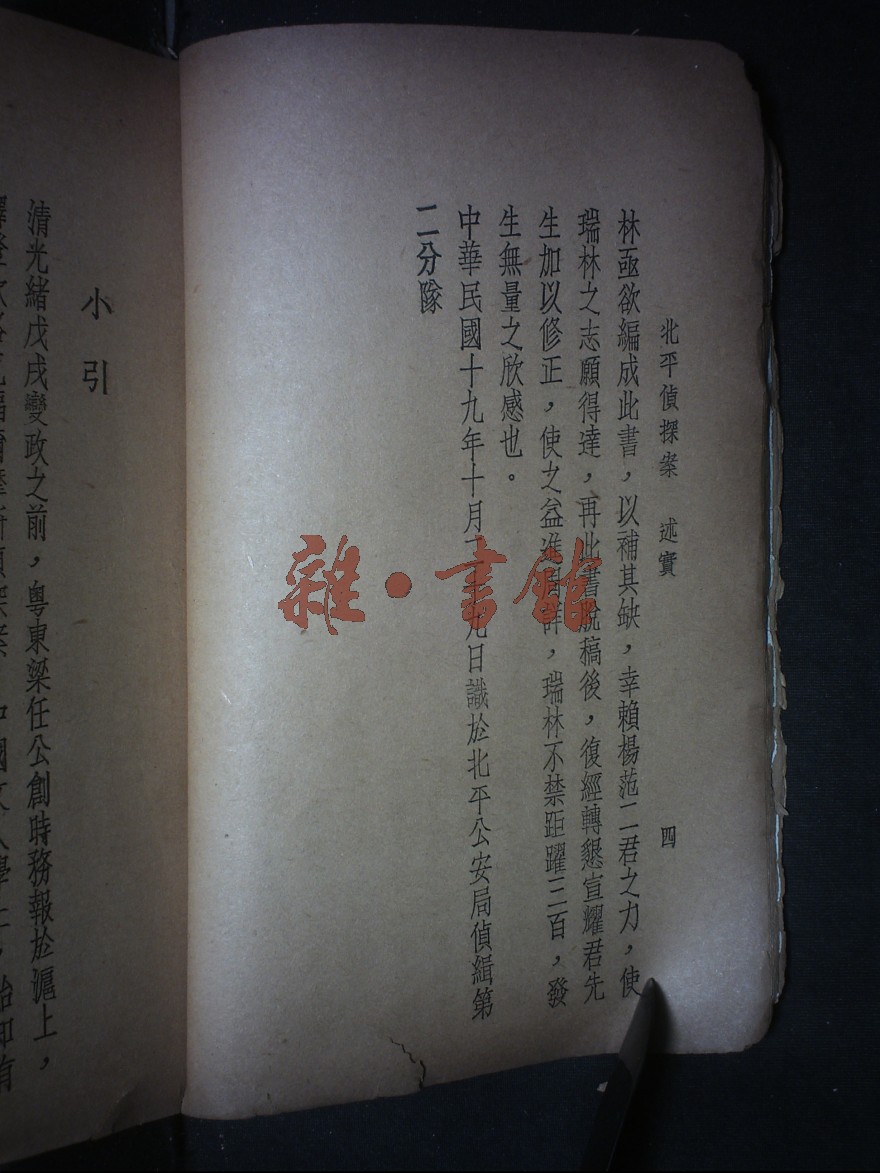 北平偵探案 述實 四
林亟欲編成此書，以補其缺，幸賴楊范二君之力，使
瑞林之志願得達，再此書脫稿後，復經轉懇宣耀君先
生加以修正，使之益進，瑞林不禁距躍三百，發
生無量之欣感也。
中華民國十九年十月九日識於北平公安局偵緝第
二分隊
小引
清光緒戊戌變政之前，粵東梁任公創時務報於滬上，
雜·書館